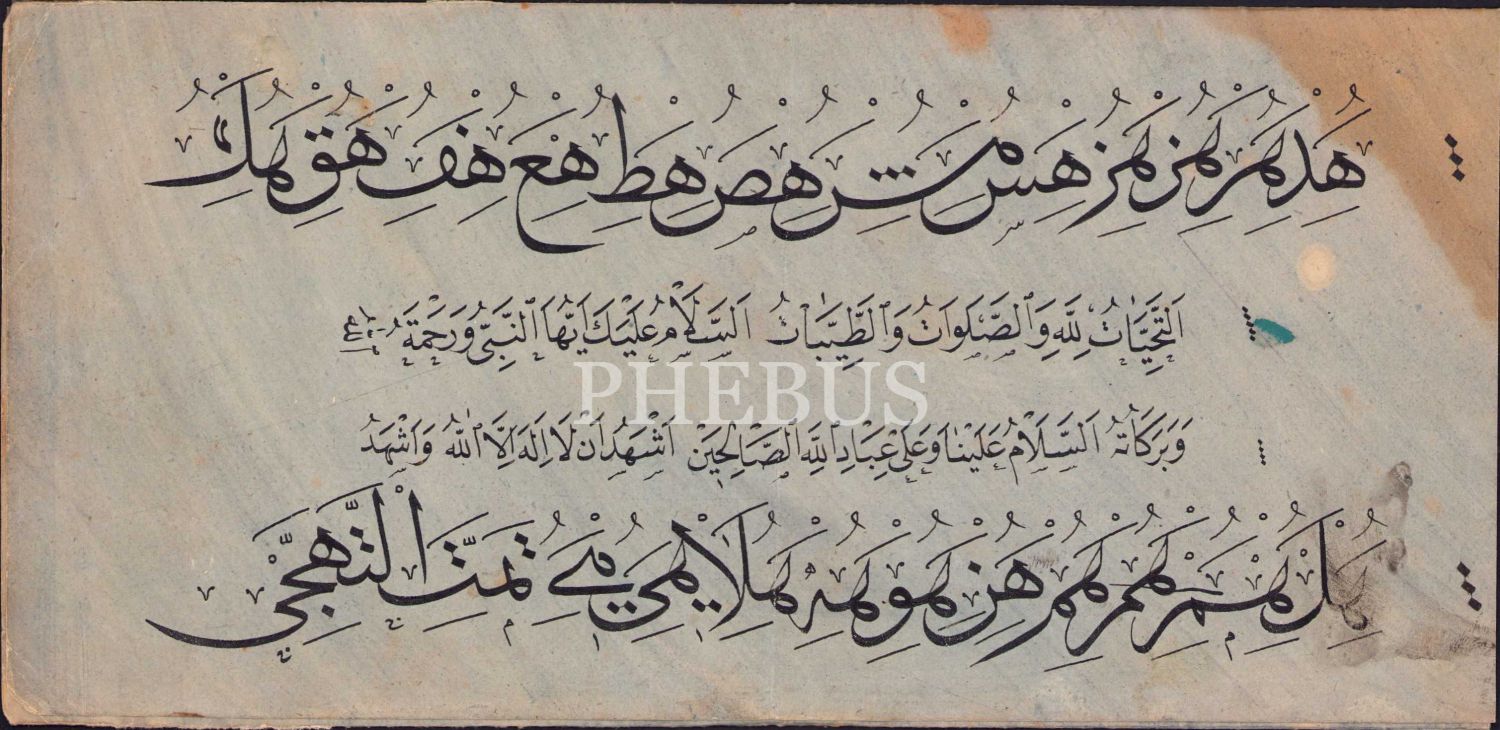 هُدِ هُرِ هُرِ هُزِ هُسِ هُشِ هُصِ هُطِ هُعِ هُفِ هُقِ هُكِ
اَلتَّحِيَّاتُ لِلّٰهِ وَالصَّلَوَاتُ وَالطَّيِّبَاتُ اَلسَّلَامُ عَلَيْكَ اَيُّهَا النَّبِيُّ وَرَحْمَةُ
PHEBUS
وَبَرَكَاتُهُ اَلسَّلَامُ عَلَيْنَا وَعَلٰى عِبَادِ اللّٰهِ الصَّالِحِينَ اَشْهَدُ اَنْ لَا اِلٰهَ اِلَّا اللّٰهُ وَاَشْهَدُ
هُلِ هُمِ هُمِ هُمِ هُنِ هُوِ هُهِ هُلَا هُيِ هُيِ تَمَّتَ التَّهَجِّي